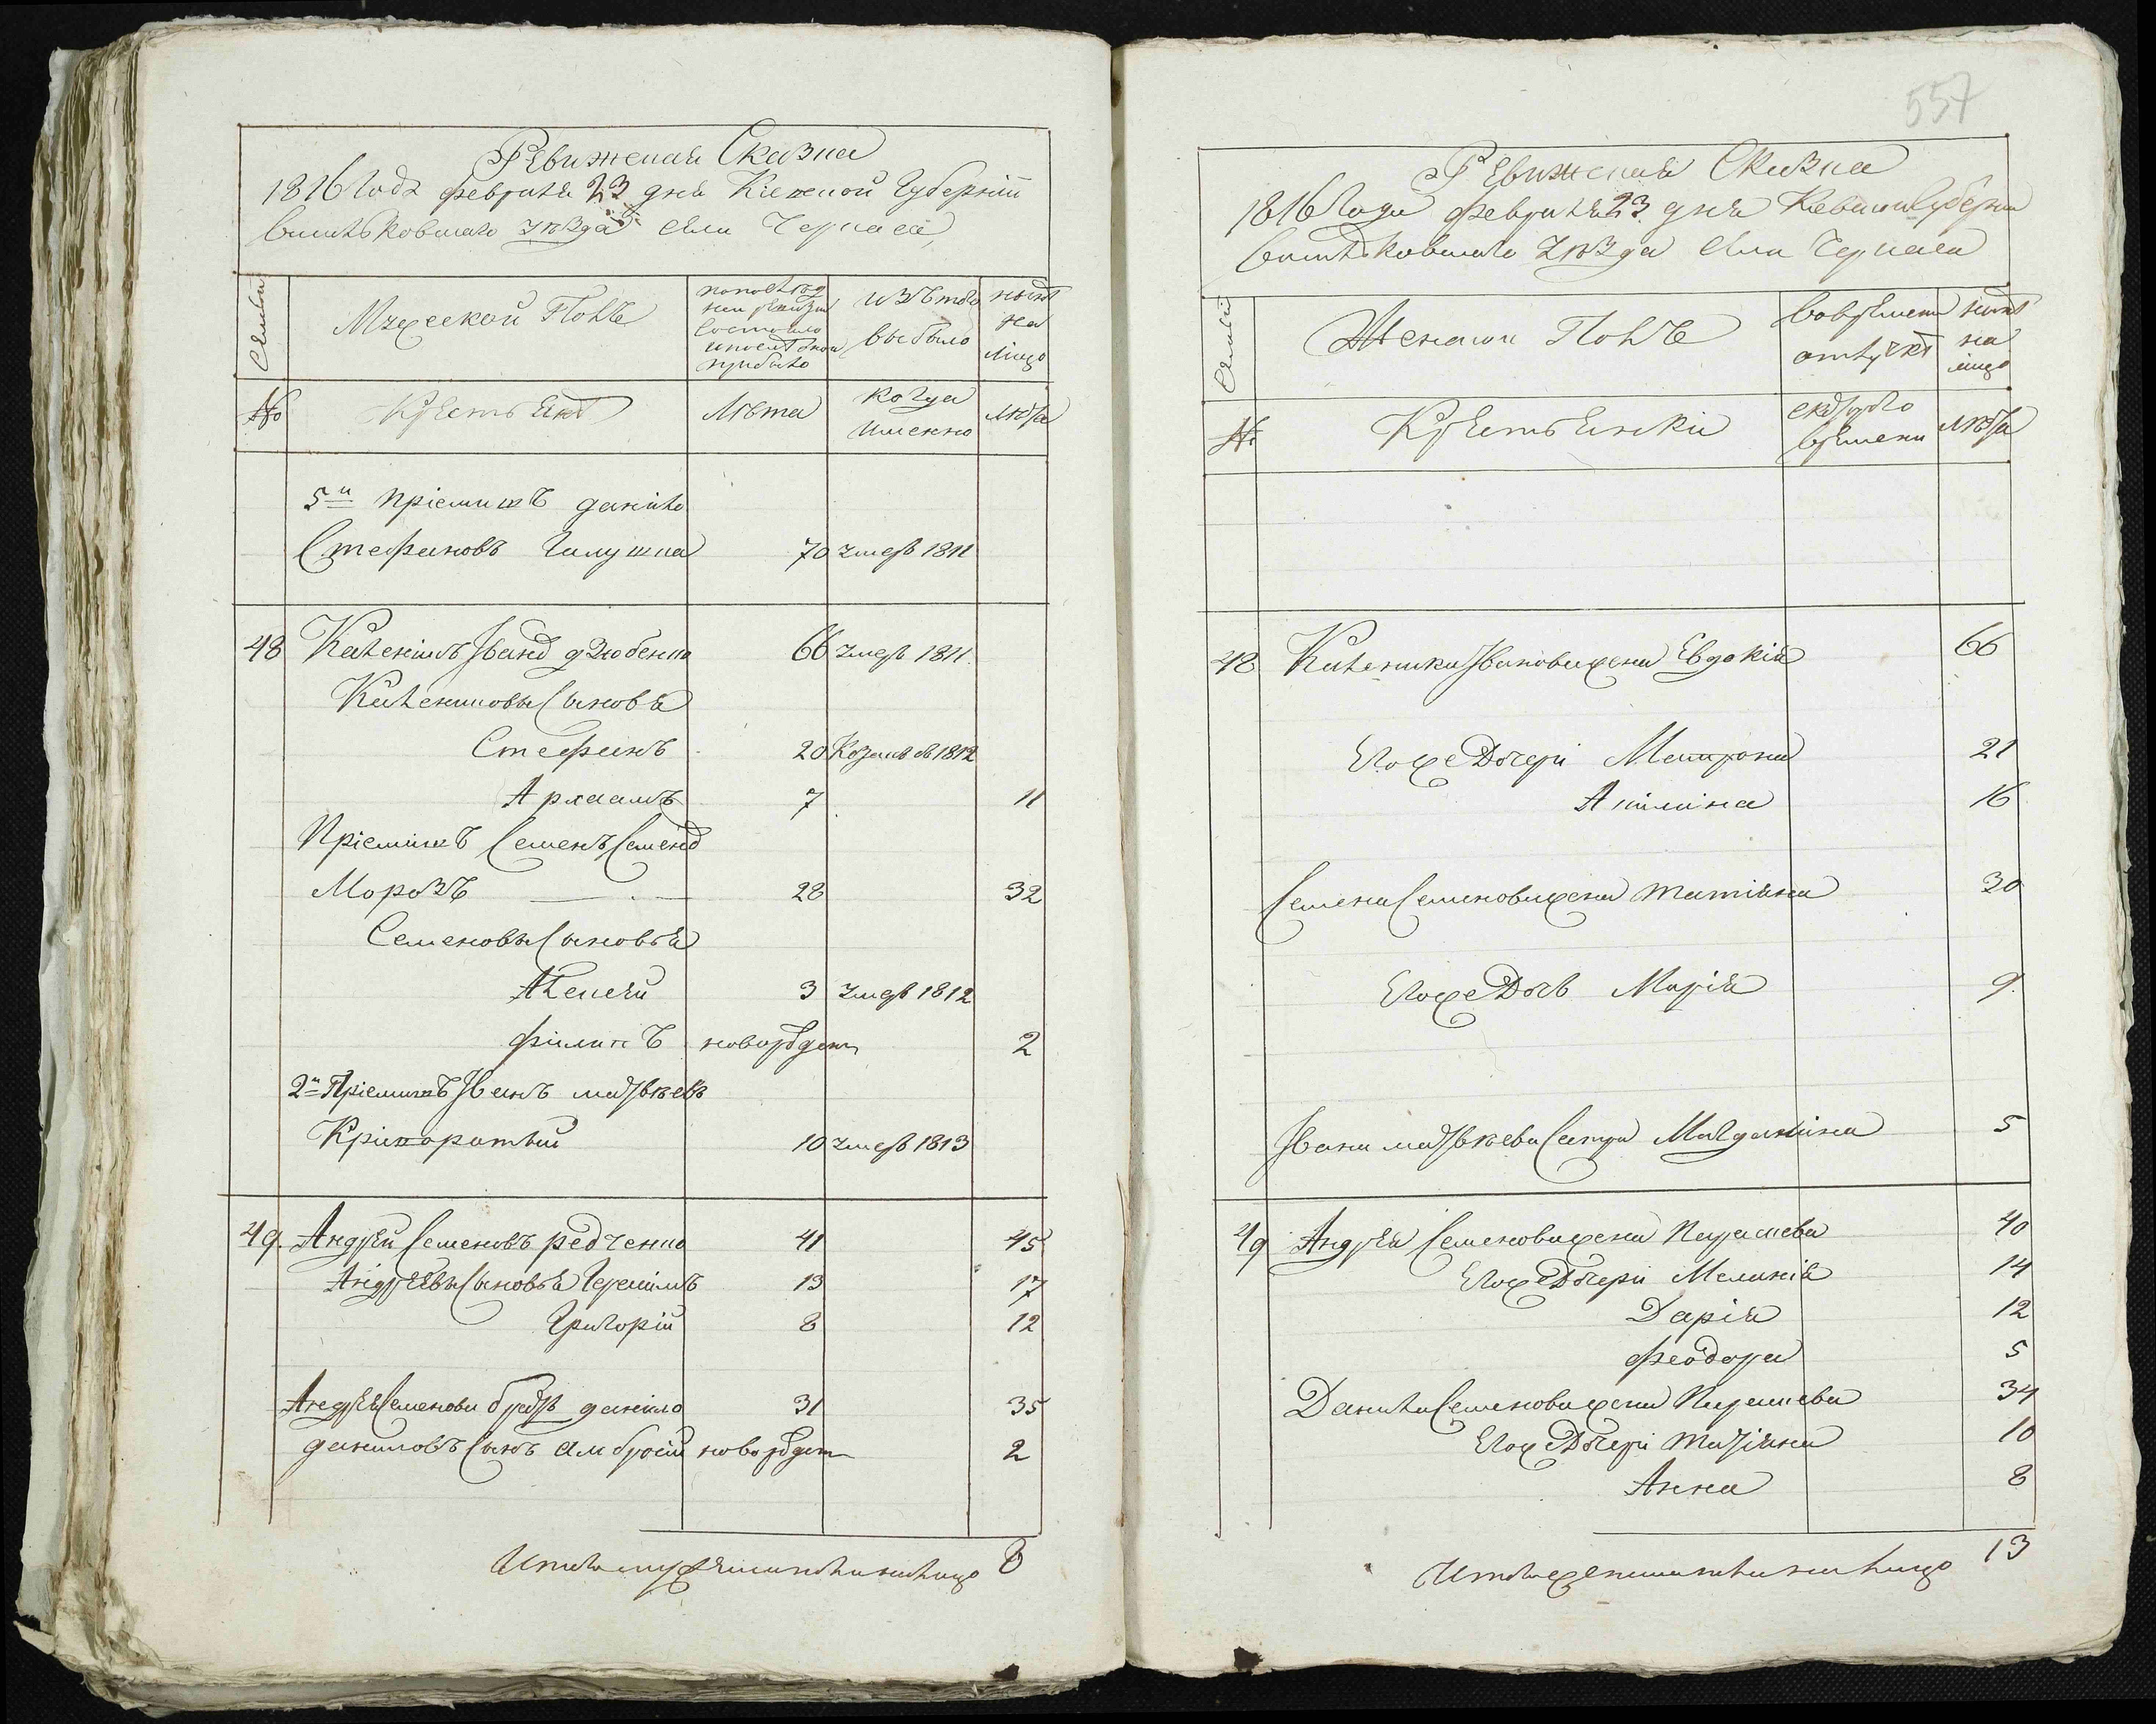 Ревижская Сказка
1816 года февраля 23 дня Кіевской Губерніи
Василковского уезда села Чернаса
Семьи
Мужеской Полъ
по последней ревизіи состояло и после оной прибыло
изъ того выбыло
ныне на лицо
№
Крестьяне
Лѣта
когда именно
Лѣта
5й пріемишъ данило
Стефановъ Галушка 70 умеръ 1811
48 Каленикъ Иванов дзюбенко 66 умеръ 1811
Калениковы Сыновья
Стефанъ 20 1812
Архаамъ 7 11
Пріемишъ Семенъ Семенов
Морозъ 28 32
Семеновы Сыновья
Алексей 3 умеръ 1812
филипъ новорожден 2
2й Пріемишъ Иванъ матвѣевъ
10 умеръ 1813
49. Андрей Семеновъ редченко 41 45
Андреевы Сыновья Герасимъ 13 17
Григорій 8 12
Андрея Семенова братъ данило 31 35
даниловъ Сынъ амбросій новорожден 2
Итого мужеска пола на лицо 8
557
Ревижская Сказка
1816 года февраля 23 дня Кевской Губерни
Василковского уезда села Чернаса
Семьи
Женской Полъ
Во временной отлучке
ныне на лицо
№
Крестьянки
с которого времени
Лѣта
48 Каленика Иванова жена Евдокія 66
Его же Дочери Матрона 21
Акилина 16
Семена Семенова жена татіяна 30
Его же Дочь Марія 9
Ивана матвѣева Сестра Магдалина 5
49 Андрея Семенова жена Параскева 40
Его же Дочери Меланія 14
Дарія 12
феодора 5
Данила Семенова жена Параскева 34
Его же Дочери татіяна 10
Анна 8
Итого женска пола на лицо 13